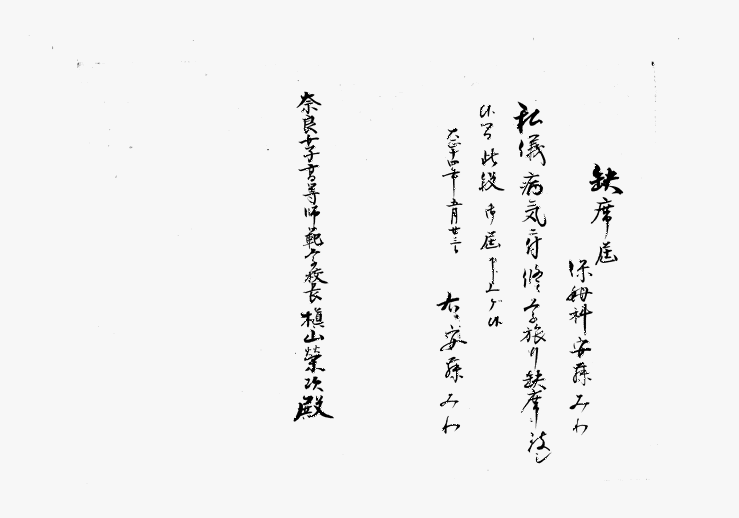 缺席届
保姆科 安藤みわ
私儀病気ニ付修学旅行缺席致
候間此段御届申上ゲ候
大正十四年五月廿三日
右 安藤みわ
奈良女子高等師範学校長 槇山榮次殿